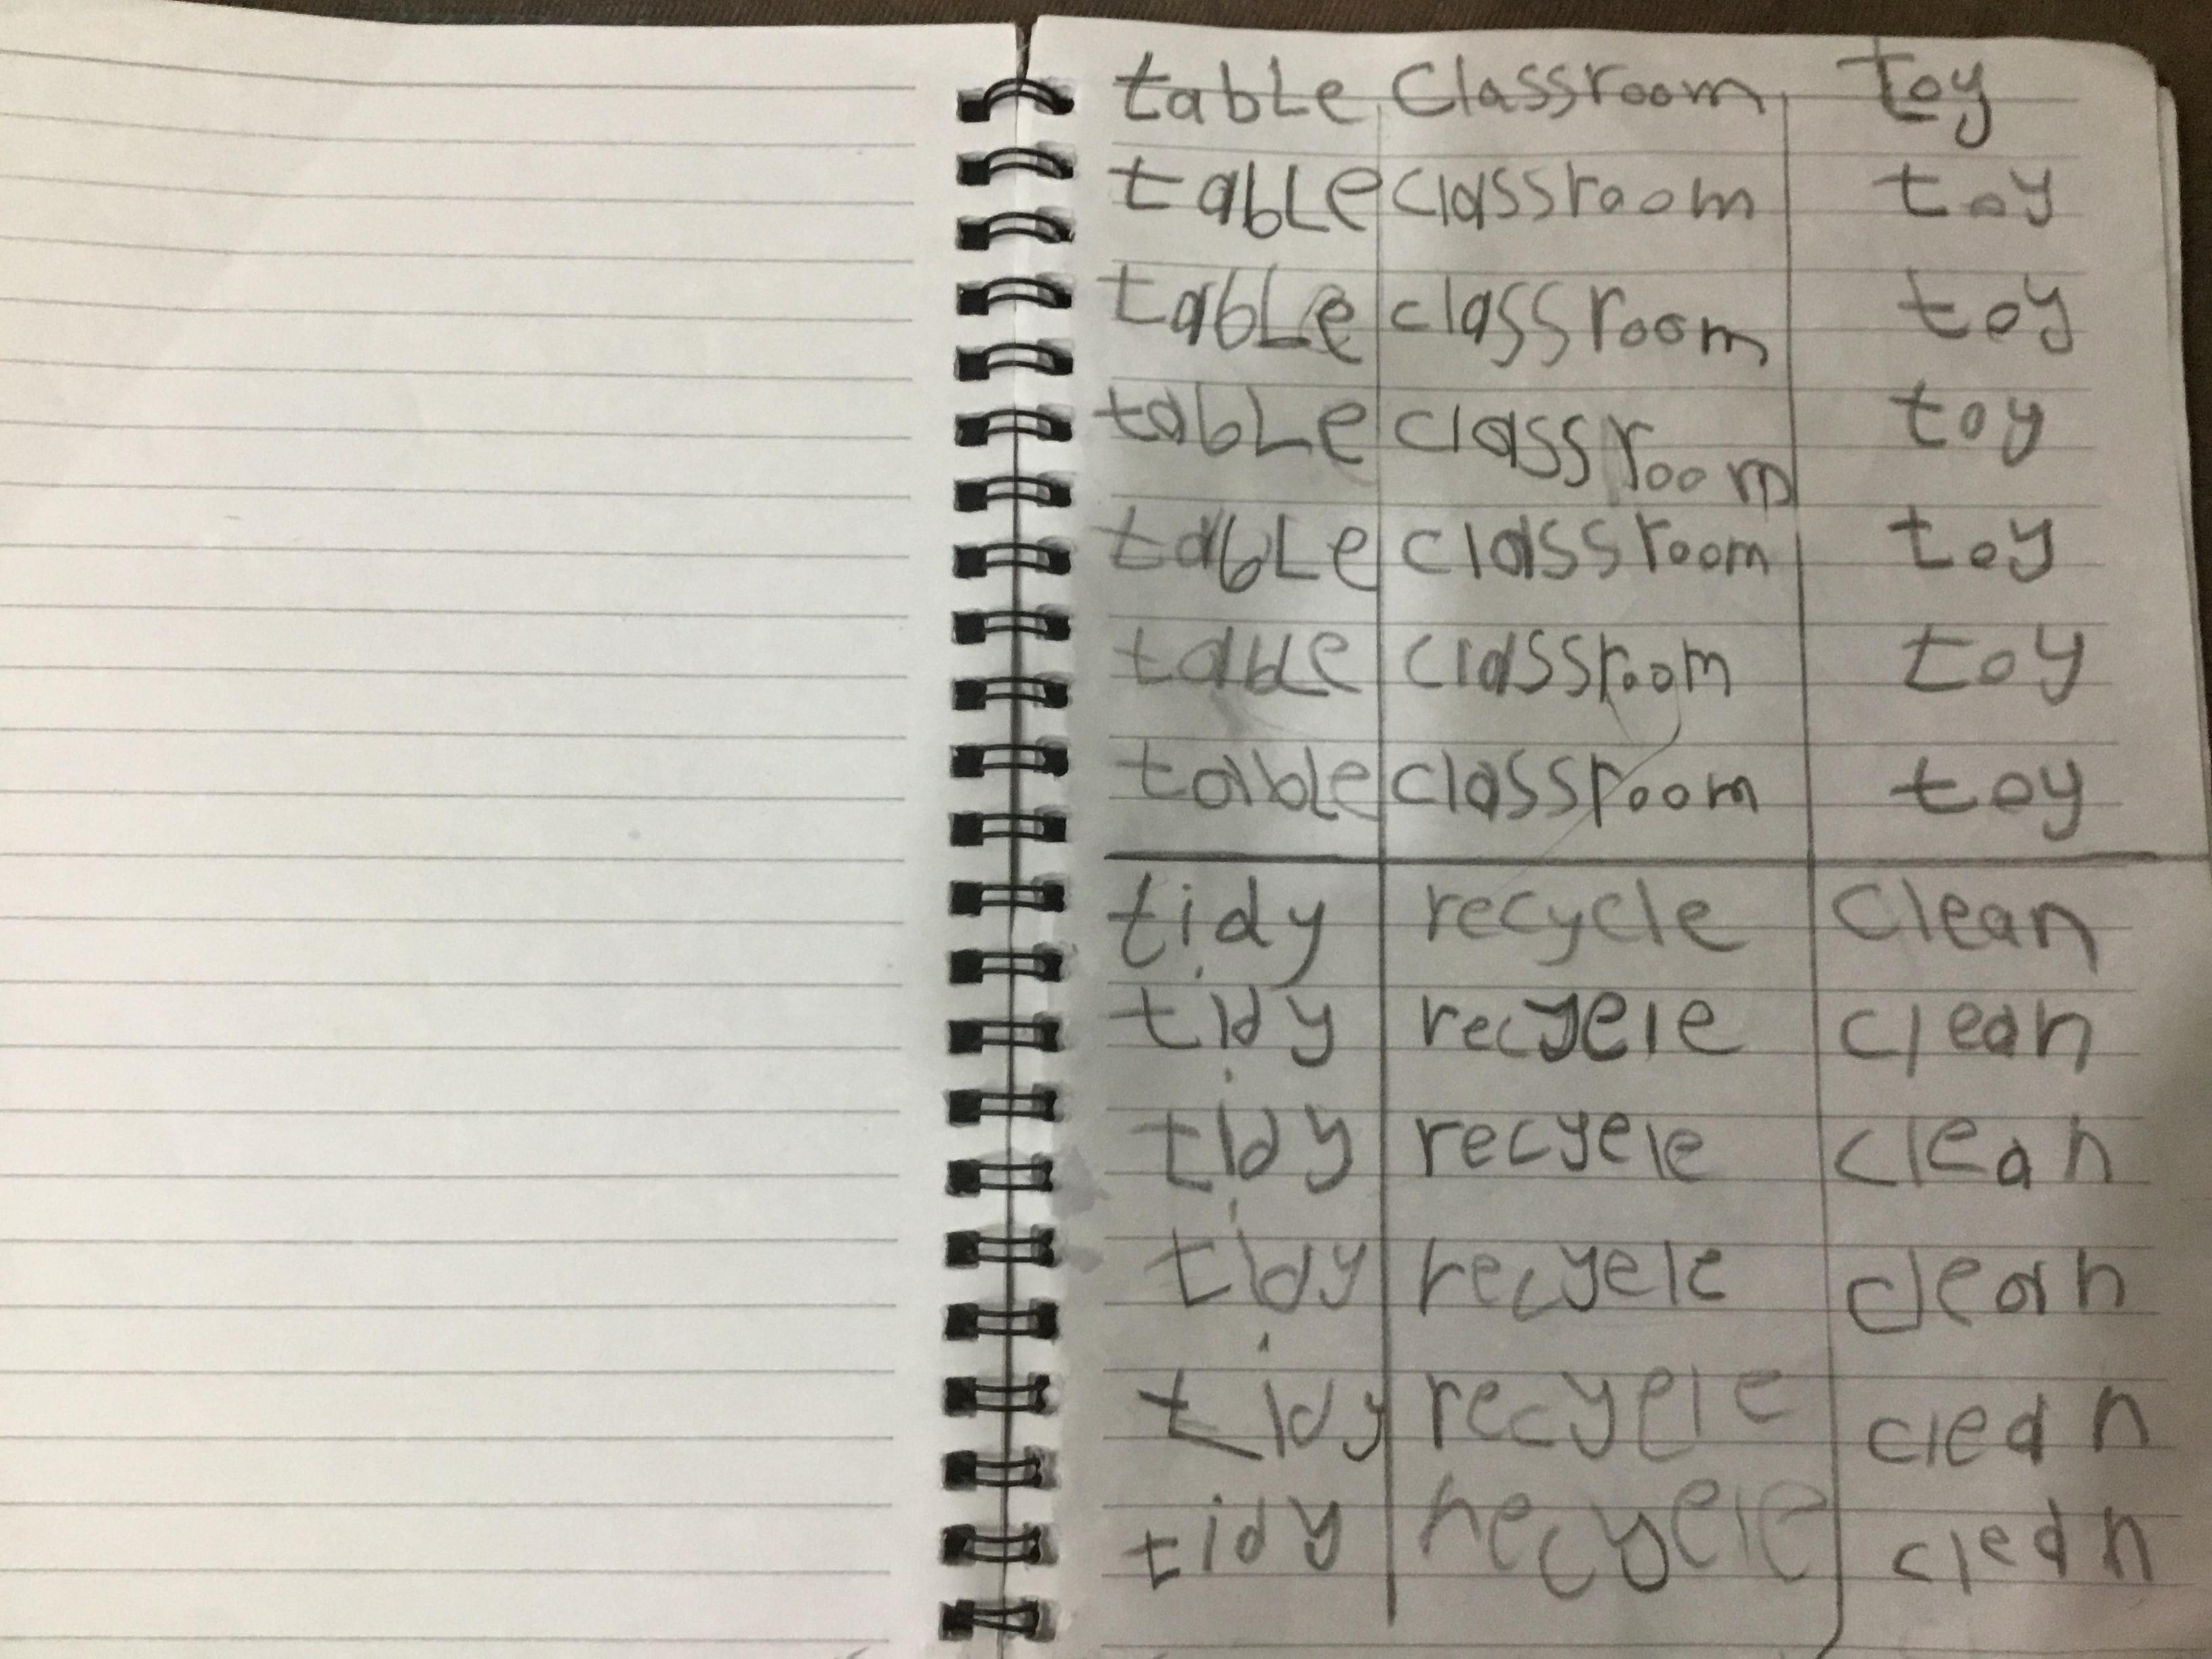 table Classroom toy
table classroom toy
table classroom toy
table classroom toy
table classroom toy
table classroom toy
table classroom toy
tidy recycle Clean
tidy recyele clean
tidy recyele clean
tidy recyele clean
tidy recyele clean
tidy recyele clean